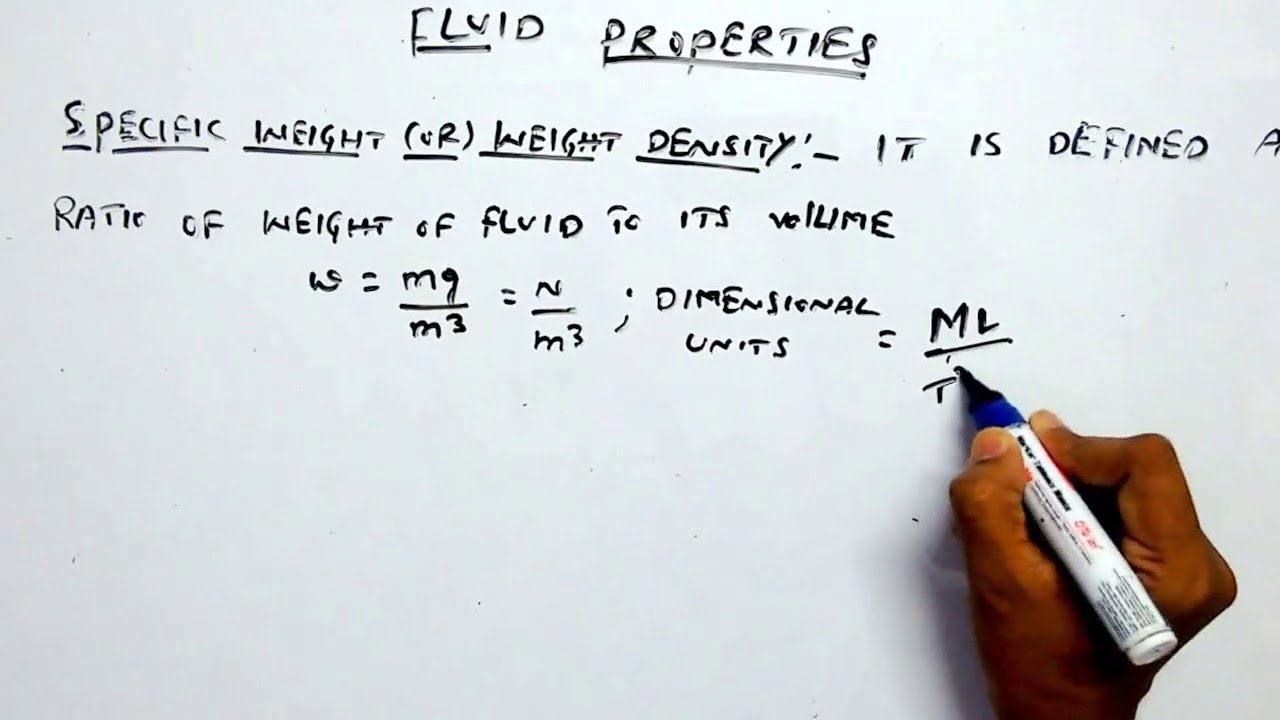 FLUID PROPERTIES
SPECIFIC WEIGHT (OR) WEIGHT DENSITY:- IT IS DEFINED A
RATIO OF WEIGHT OF FLUID TO ITS VOLUME
w = mg/m³ = N/m³ ; DIMENSIONAL UNITS = ML/T